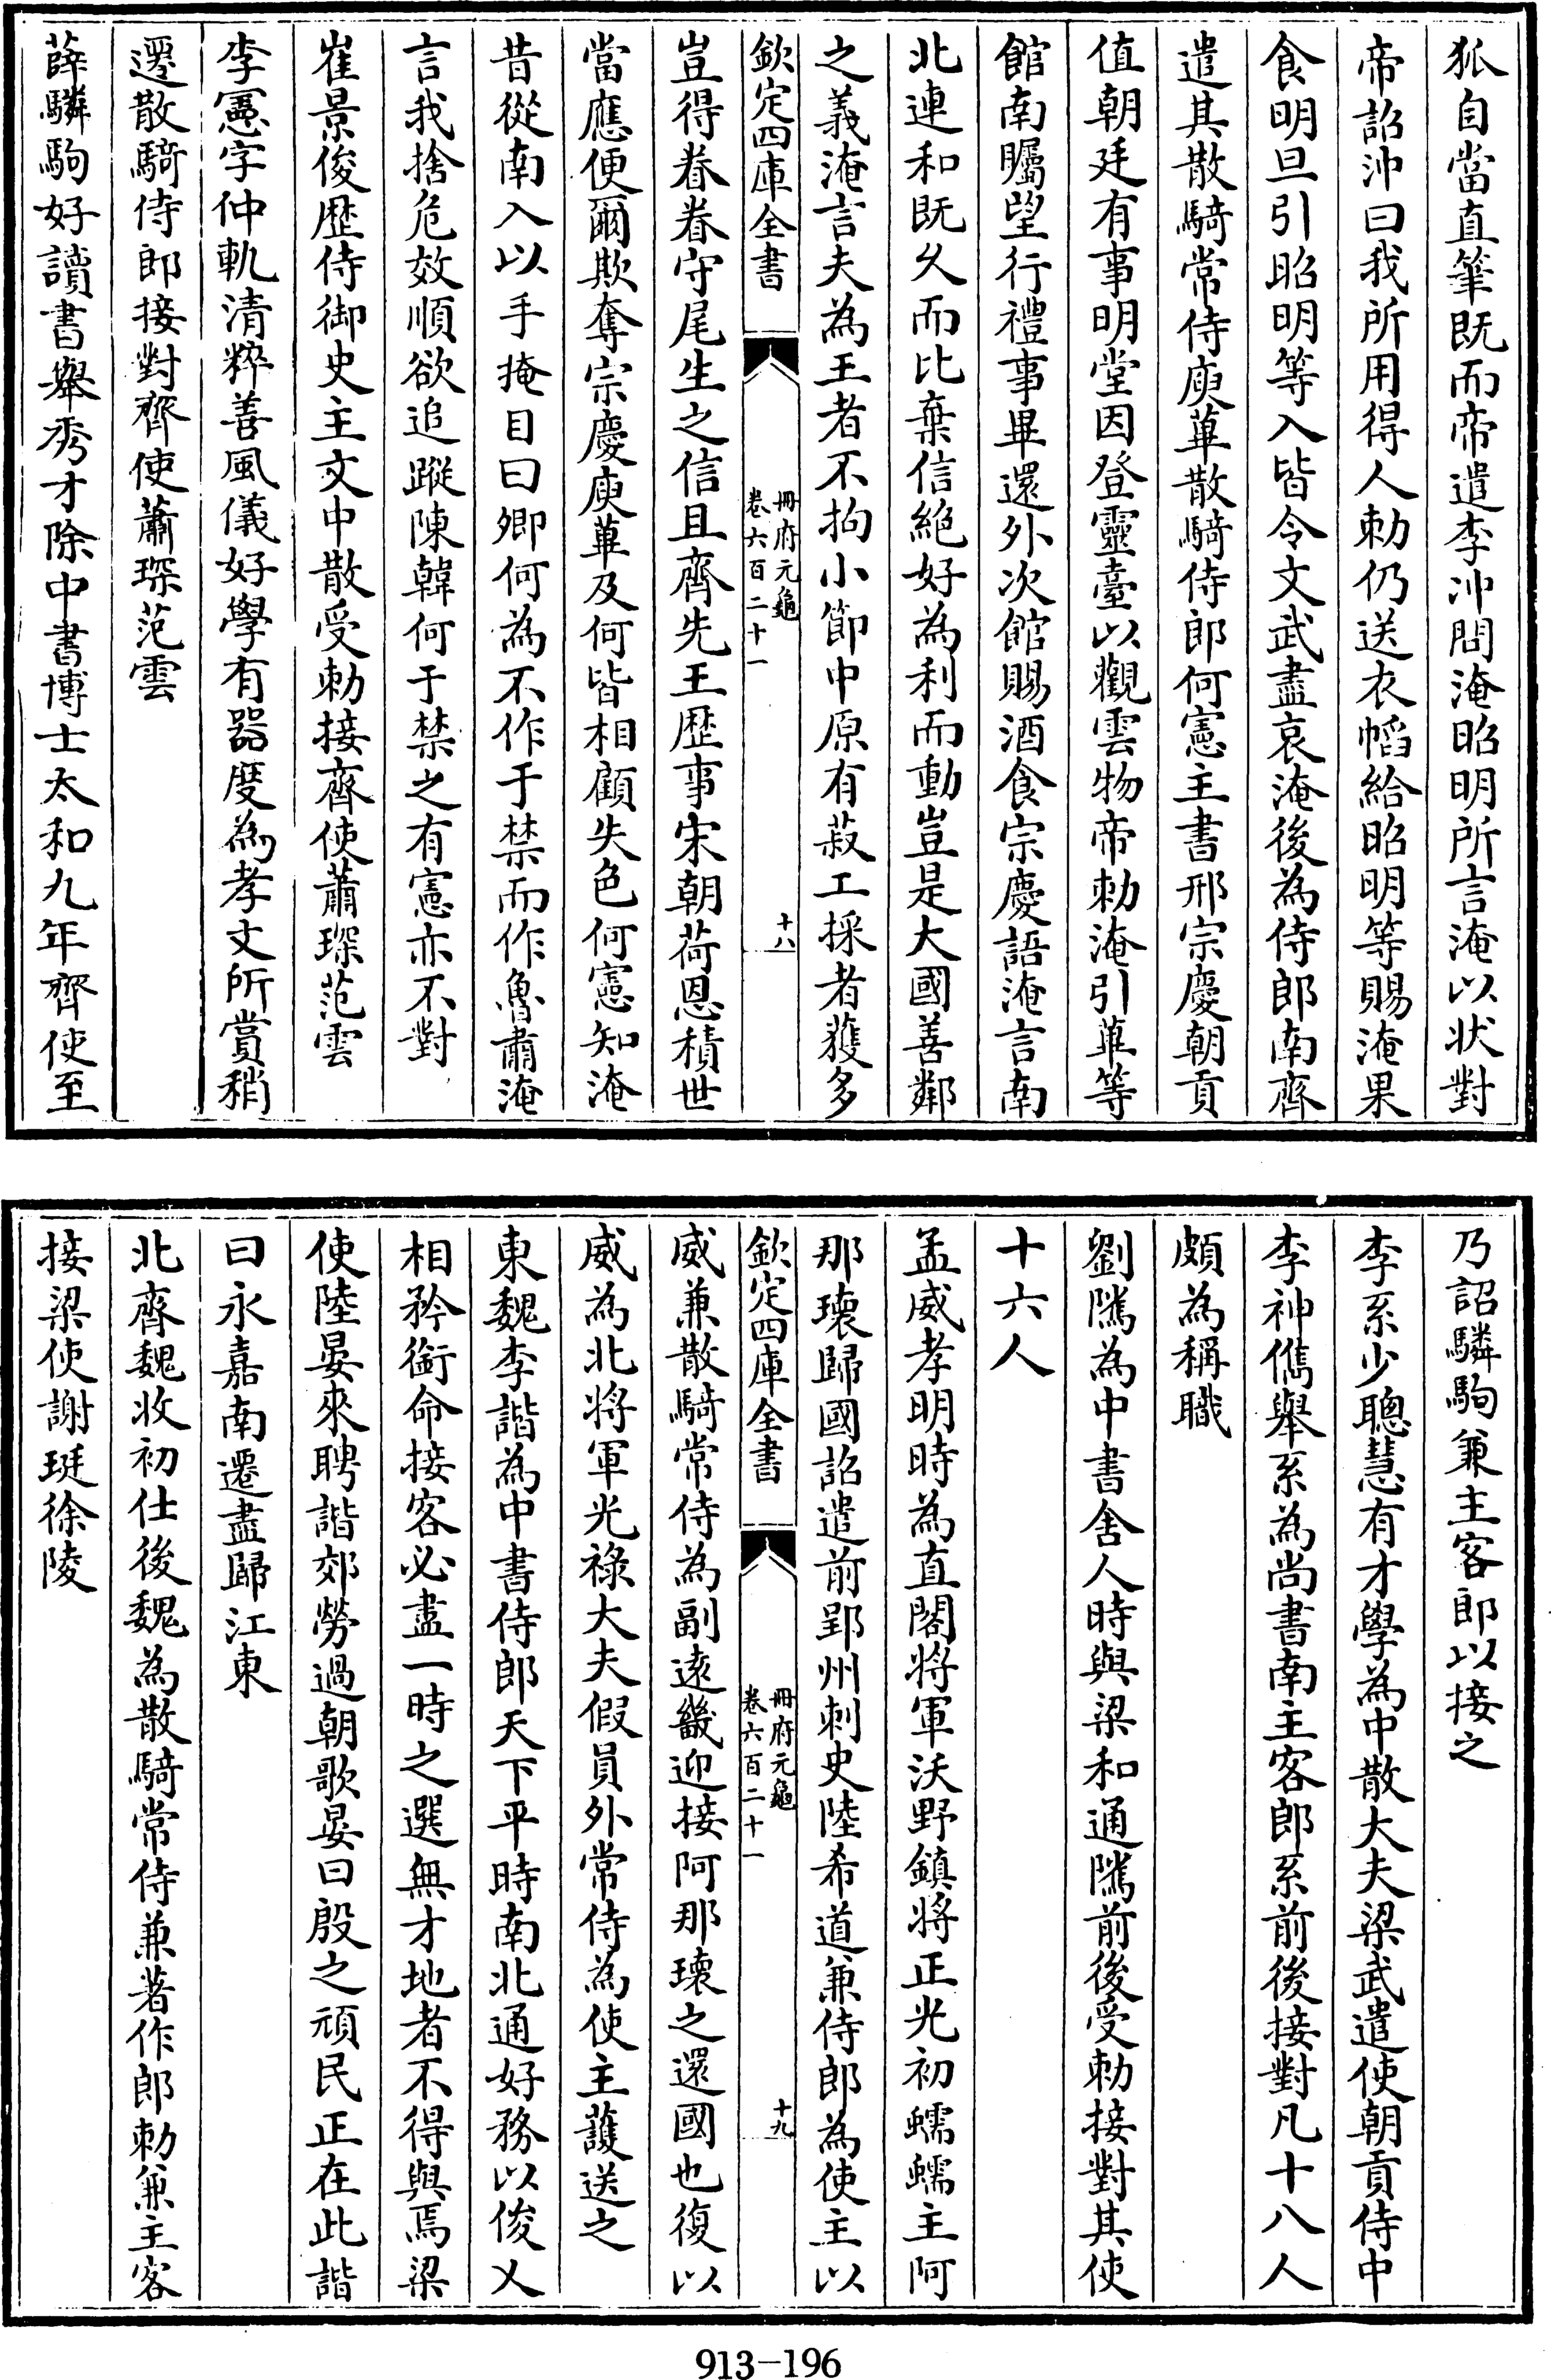 狐自當直筆既而帝遣李沖問淹昭明所言淹以狀對
帝詔沖曰我所用得人勅仍送衣幍給昭明等賜淹果
食明旦引昭明等入皆令文武盡哀淹後為侍郎南齊
遣其散騎常侍庾蓽散騎侍郎何憲主書邢宗慶朝貢
值朝廷有事明堂因登靈臺以觀雲物帝勅淹引蓽等
館南矚望行禮事畢還外次館賜酒食宗慶語淹言南
北連和既久而比棄信絕好為利而動豈是大國善鄰
之義淹言夫為王者不拘小節中原有菽工採者獲多
欽定四庫全書
冊府元龜
卷六百二十一
十八
豈得眷眷守尾生之信且齊先王歷事宋朝荷恩積世
當應便爾欺奪宗慶庾蓽及何皆相顧失色何憲知淹
昔從南入以手掩目曰卿何為不作于禁而作魯肅淹
言我捨危效順欲追蹤陳韓何于禁之有憲亦不對
崔景俊歷侍御史主文中散受勅接齊使蕭琛范雲
李憲字仲軌清粹善風儀好學有器度為孝文所賞稍
遷散騎侍郎接對齊使蕭琛范雲
薛驎駒好讀書舉秀才除中書博士太和九年齊使至
乃詔驎駒兼主客郎以接之
李系少聰慧有才學為中散大夫梁武遣使朝貢侍中
李神儁舉系為尚書南主客郎系前後接對凡十八人
頗為稱職
劉隲為中書舍人時與梁和通隲前後受勅接對其使
十六人
孟威孝明時為直閣將軍沃野鎮將正光初蠕蠕主阿
那瓌歸國詔遣前郢州刺史陸希道兼侍郎為使主以
欽定四庫全書
冊府元龜
卷六百二十一
十九
威兼散騎常侍為副遠畿迎接阿那瓌之還國也復以
威為北將軍光祿大夫假員外常侍為使主護送之
東魏李諧為中書侍郎天下平時南北通好務以俊乂
相矜銜命接客必盡一時之選無才地者不得與焉梁
使陸晏來聘諧郊勞過朝歌晏曰殷之頑民正在此諧
曰永嘉南遷盡歸江東
北齊魏收初仕後魏為散騎常侍兼著作郎勅兼主客
接梁使謝珽徐陵
913-196